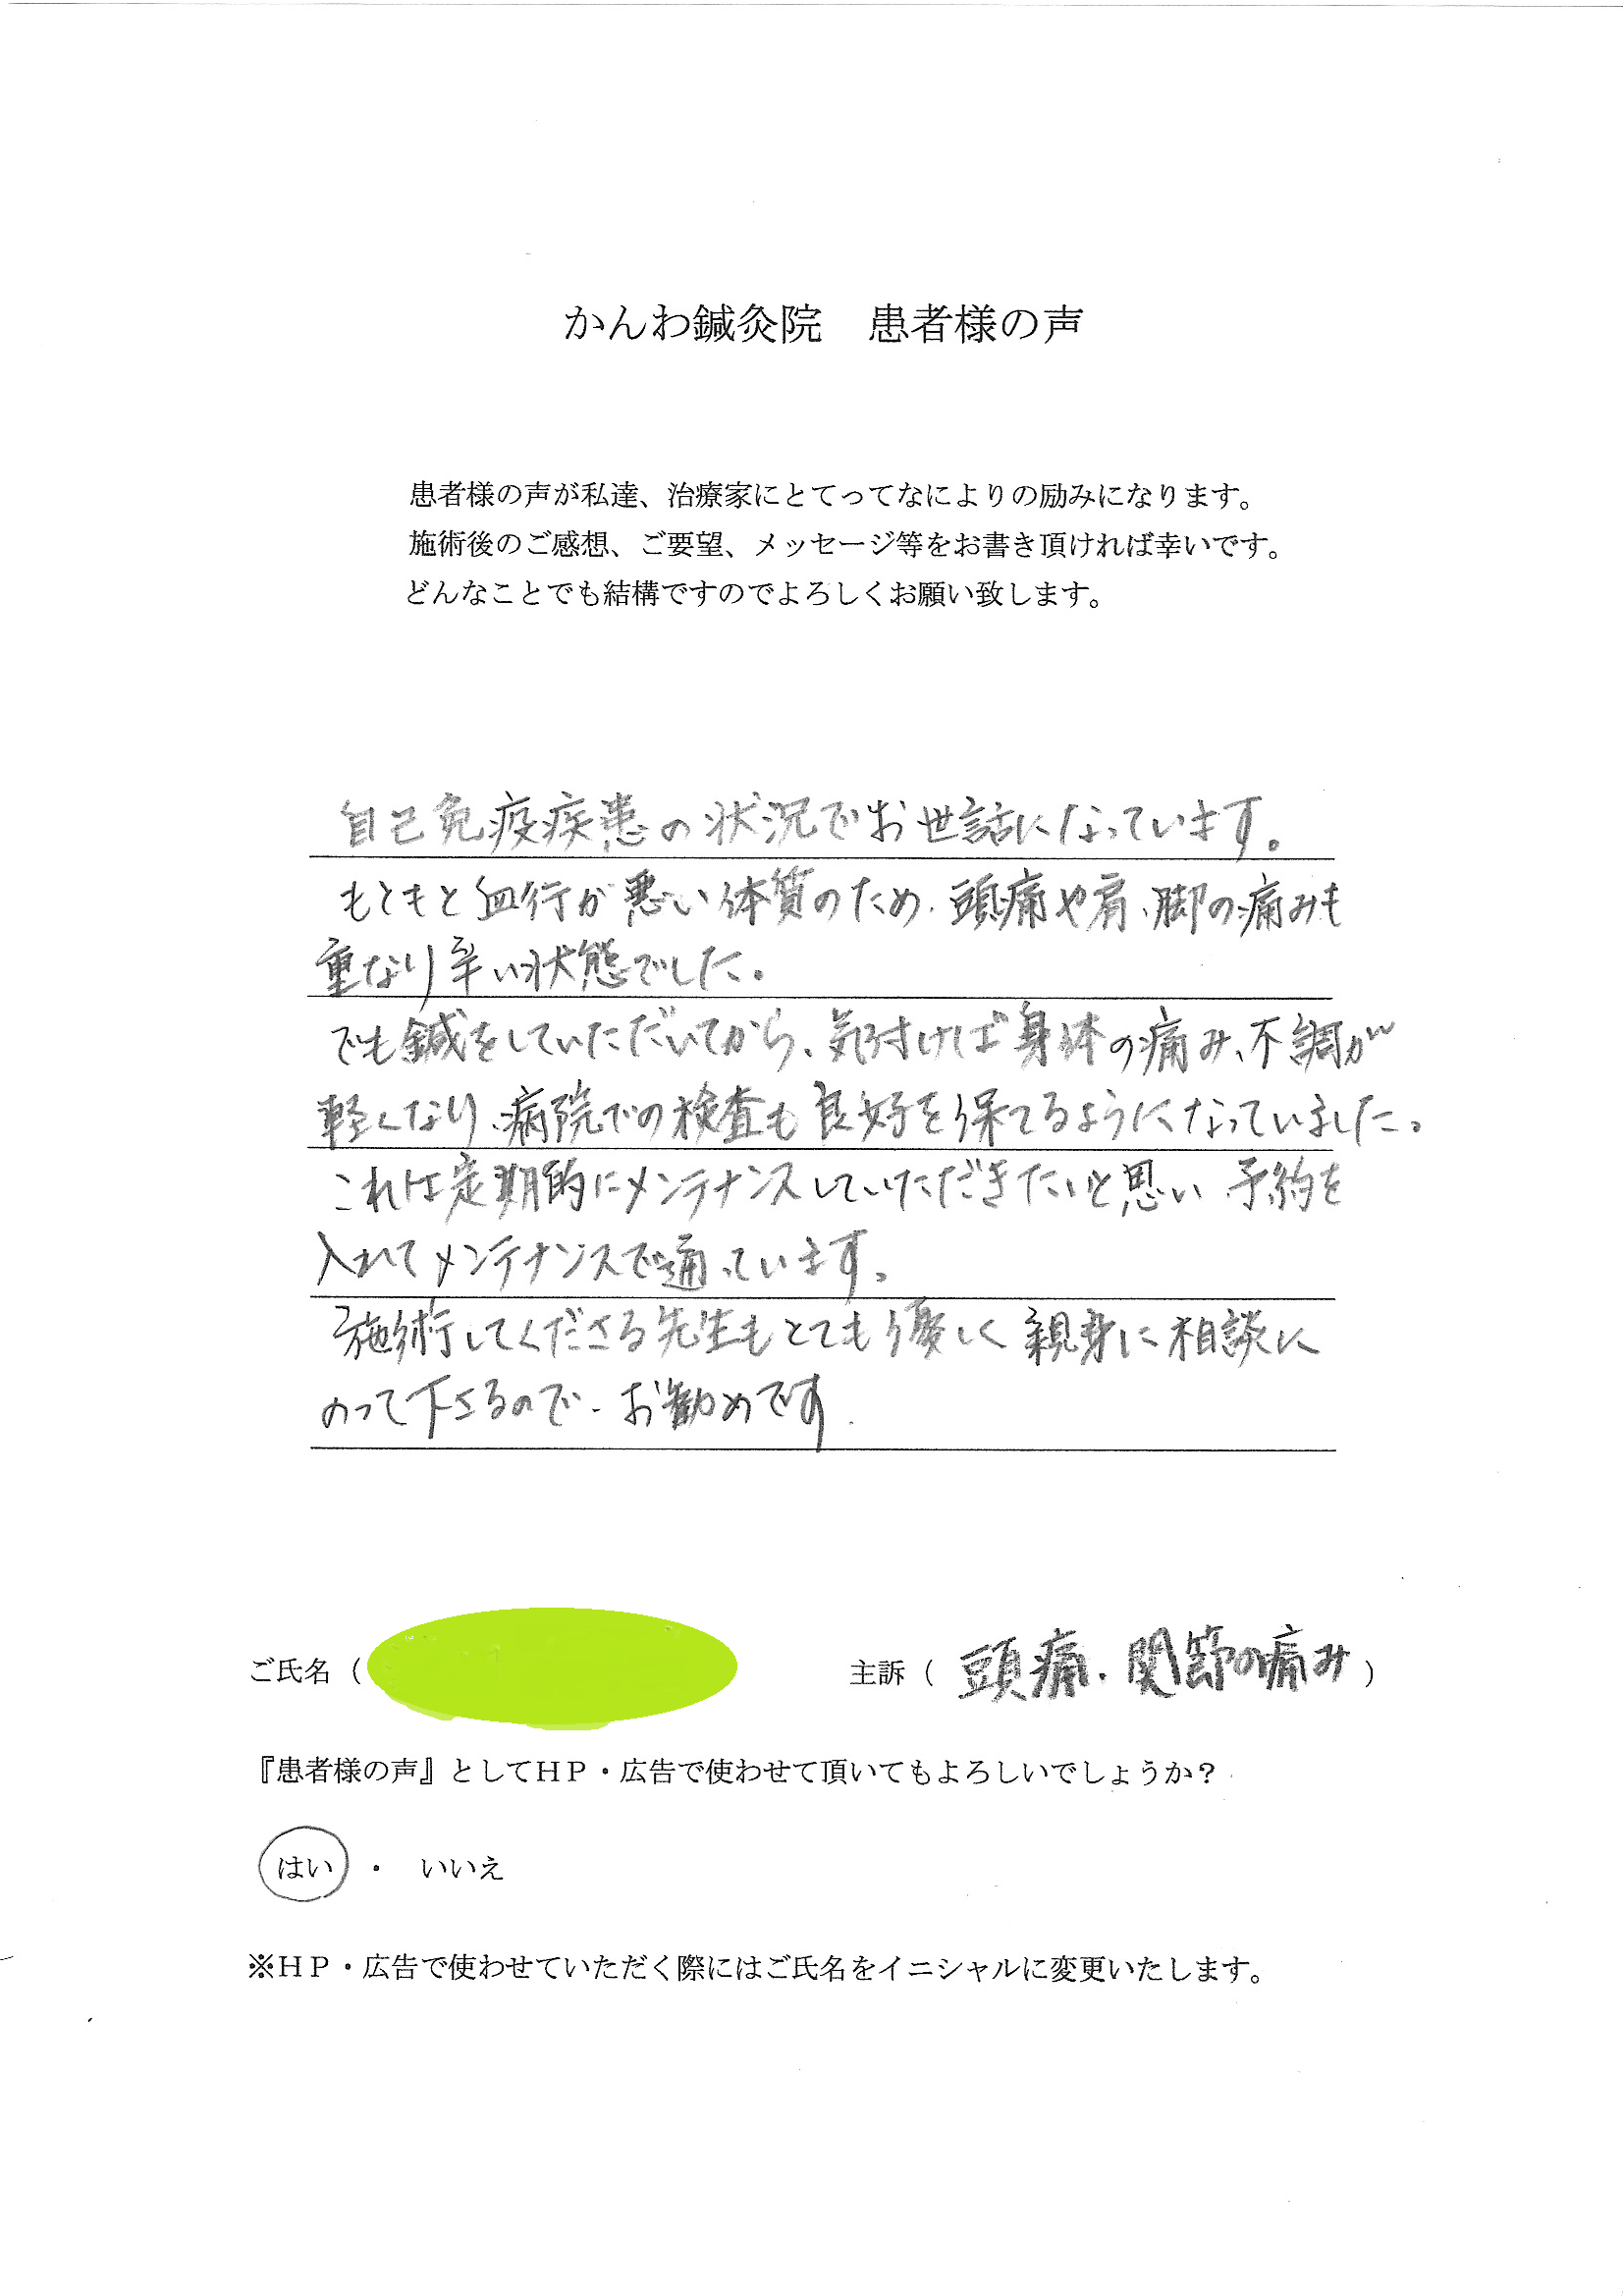 かんわ鍼灸院　患者様の声
患者様の声が私達、治療家にとてってなによりの励みになります。
施術後のご感想、ご要望、メッセージ等をお書き頂ければ幸いです。
どんなことでも結構ですのでよろしくお願い致します。
自己免疫疾患の状況でお世話になっています。
もともと血行が悪い体質のため、頭痛や肩、脚の痛みも
重なり辛い状態でした。
でも鍼をしていただいてから、気付けば身体の痛み、不調が
軽くなり、病院での検査も良好を保てるようになっていました。
これは定期的にメンテナンスしていただきたいと思い 予約を
入れてメンテナンスで通っています。
施術してくださる先生もとても優しく親身に相談に
のって下さるので、お勧めです.
ご氏名（
主訴（ 頭痛．関節の痛み ）
『患者様の声』としてＨＰ・広告で使わせて頂いてもよろしいでしょうか？
はい ・ いいえ
※ＨＰ・広告で使わせていただく際にはご氏名をイニシャルに変更いたします。